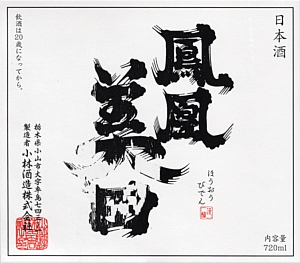 日本酒
鳳凰
美田
ほうおう
びでん
内容量
720ml
飲酒は20歳になってから。
栃木県小山市大字卒島七四三一一
製造者 小林酒造株式会社